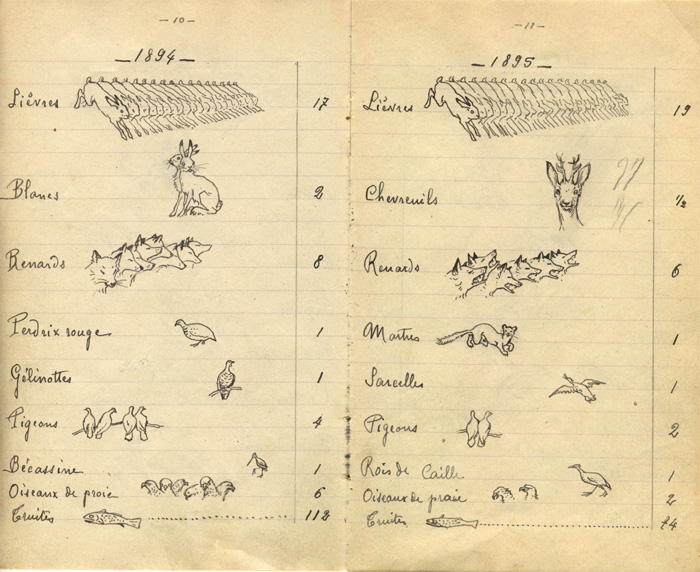 — 10 —
— 1894 —
Lièvres 17
Blancs 2
Renards 8
Perdrix rouge 1
Gélinottes 1
Pigeons 4
Bécassine 1
Oiseaux de proie 6
Truites 112
— 11 —
— 1895 —
Lièvres 19
Chevreuils ½
Renards 6
Martres 1
Sarcelles 1
Pigeons 2
Rois de Caille 1
Oiseaux de proie 2
Truites